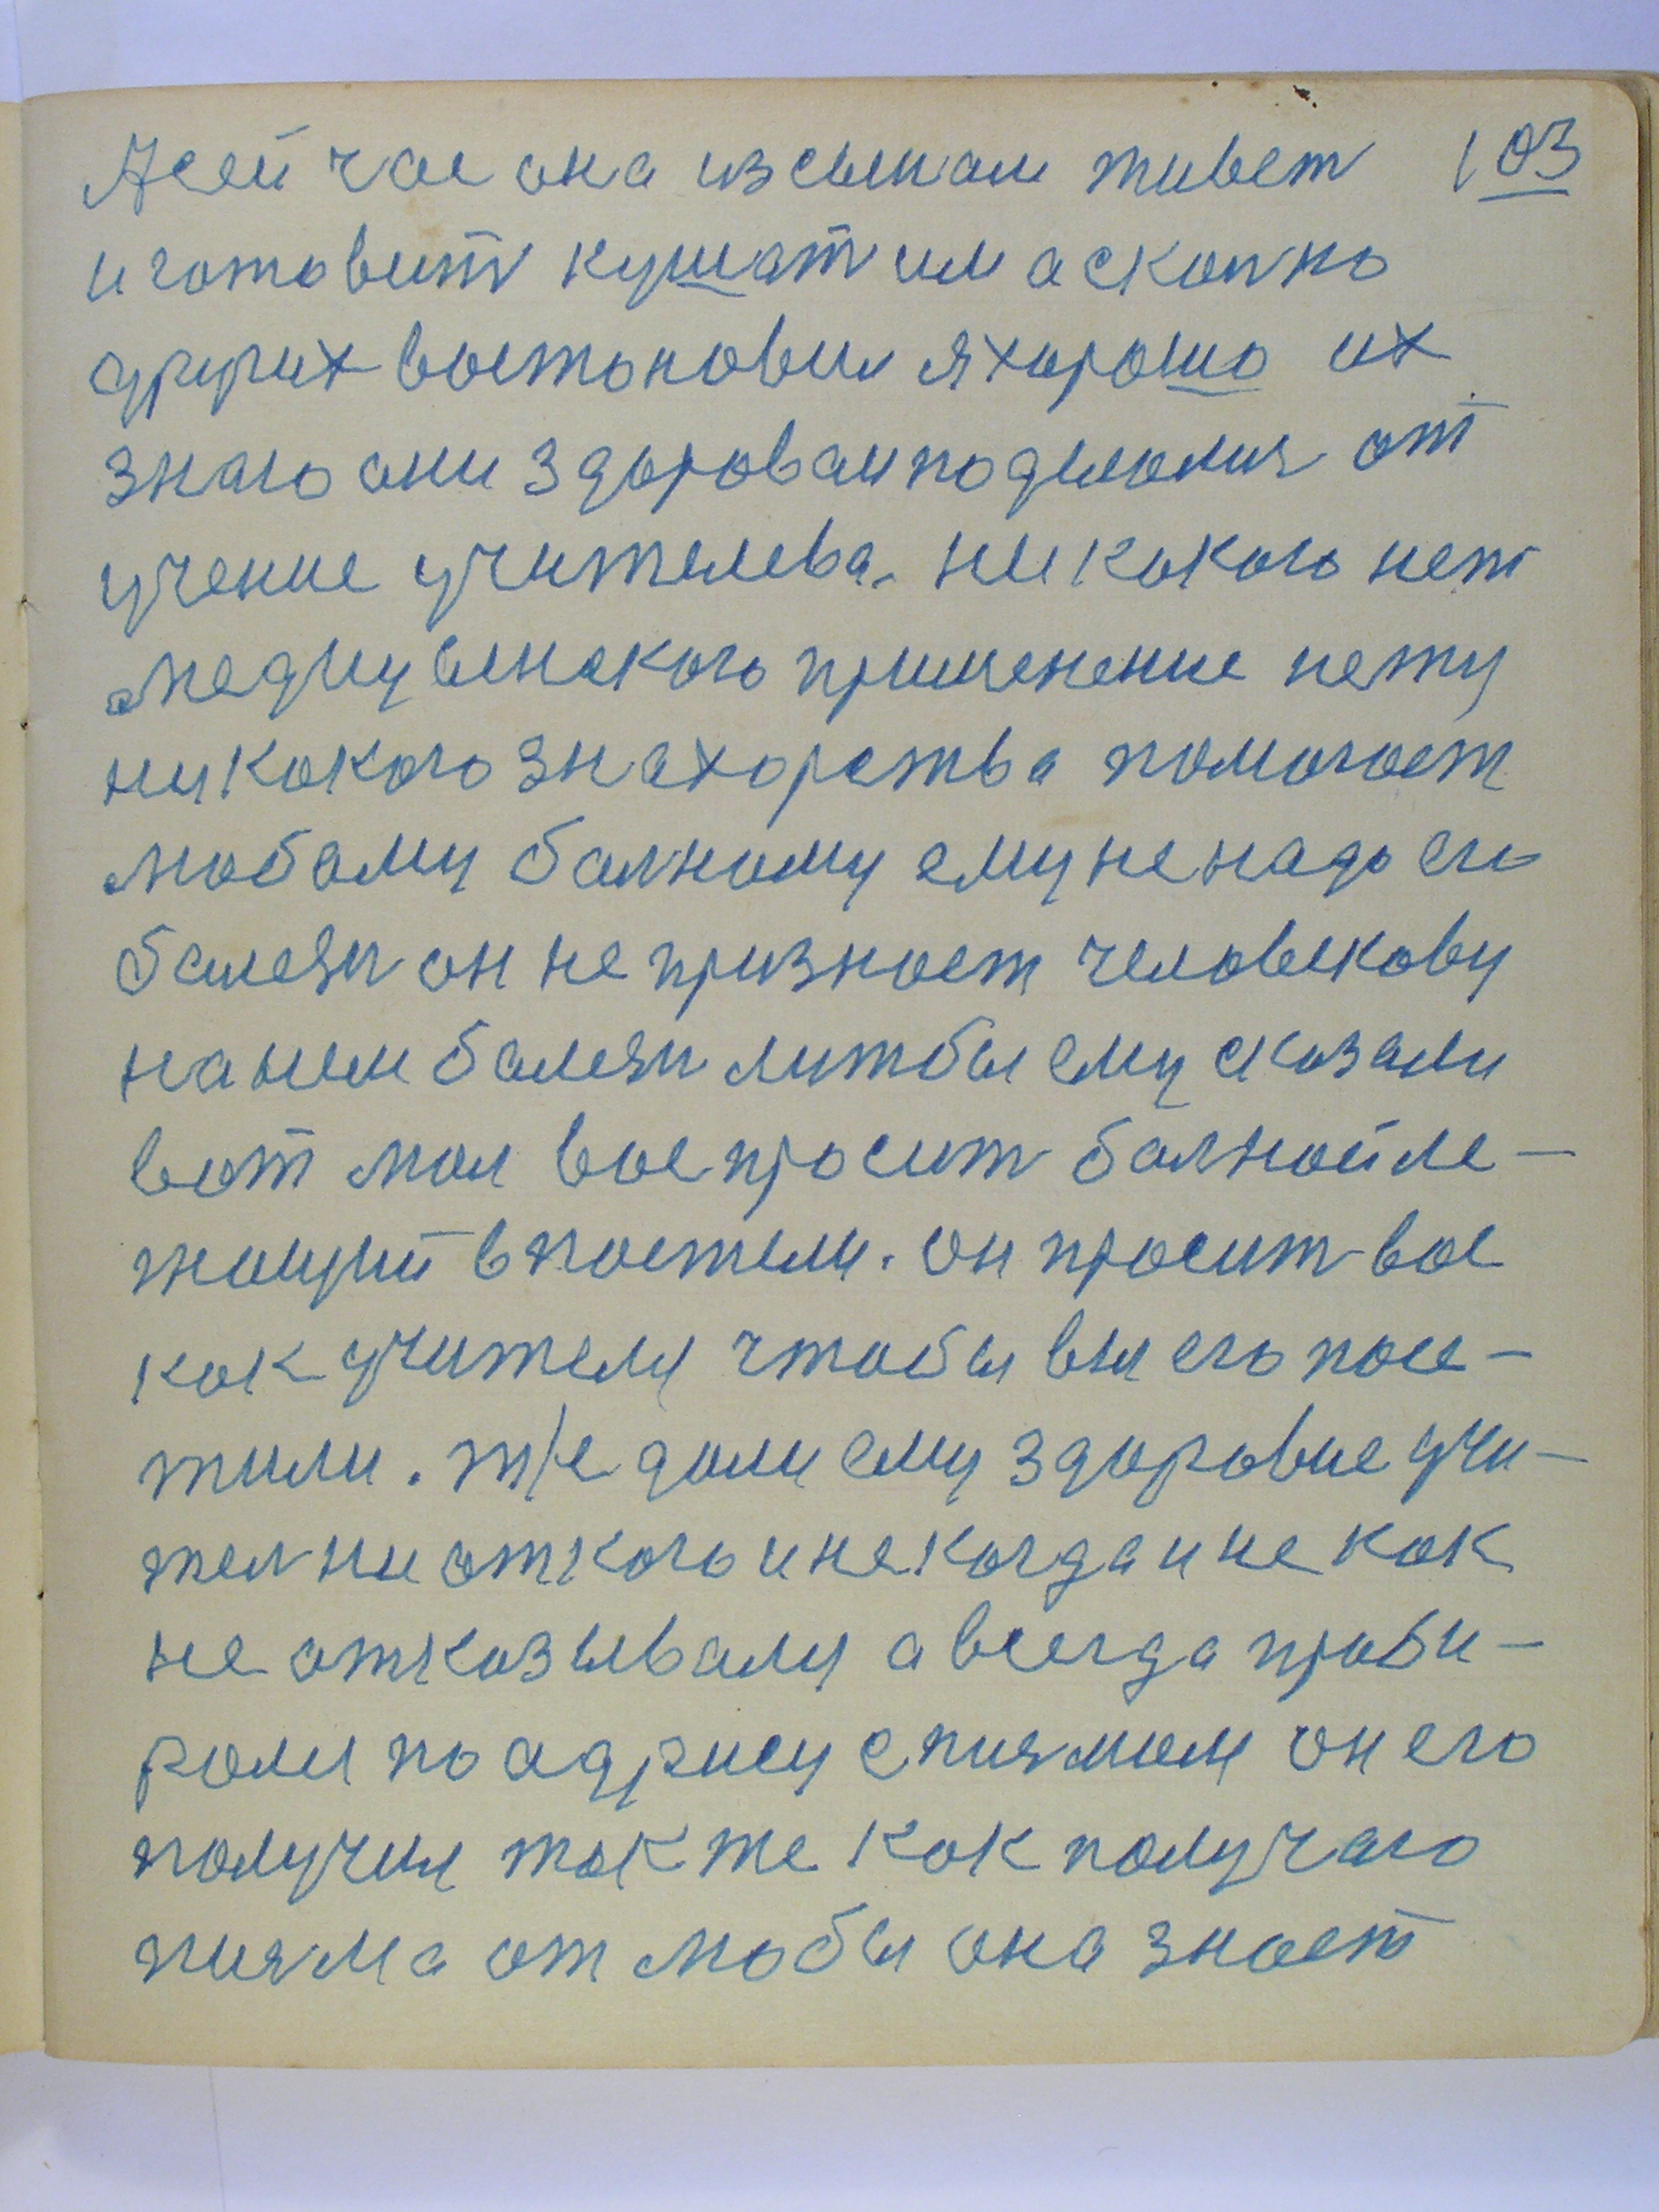 А сей час она из сынам живет 103
и готовит кушат им а сколко
других востоновил я хорошо их
знаю они здоровам поделолис от
учение учителева. ни кокого нет
медицынского применение нету
ни кокого знахорства помогоет
любому болному ему не надо его
болезн он не признает человекову
на нем болезн лижбы ему сказали
вот мол вос просит болной ле-
жощий в постели. он просит вос
как учителя чтобы вы его посе-
тили. т/е доли ему здоровие учи-
тел ни откого и не когда и не как
не отказывалы а всегда проби-
ролы по адрису с писмом он его
получил так же как получаю
писма от любы она знает